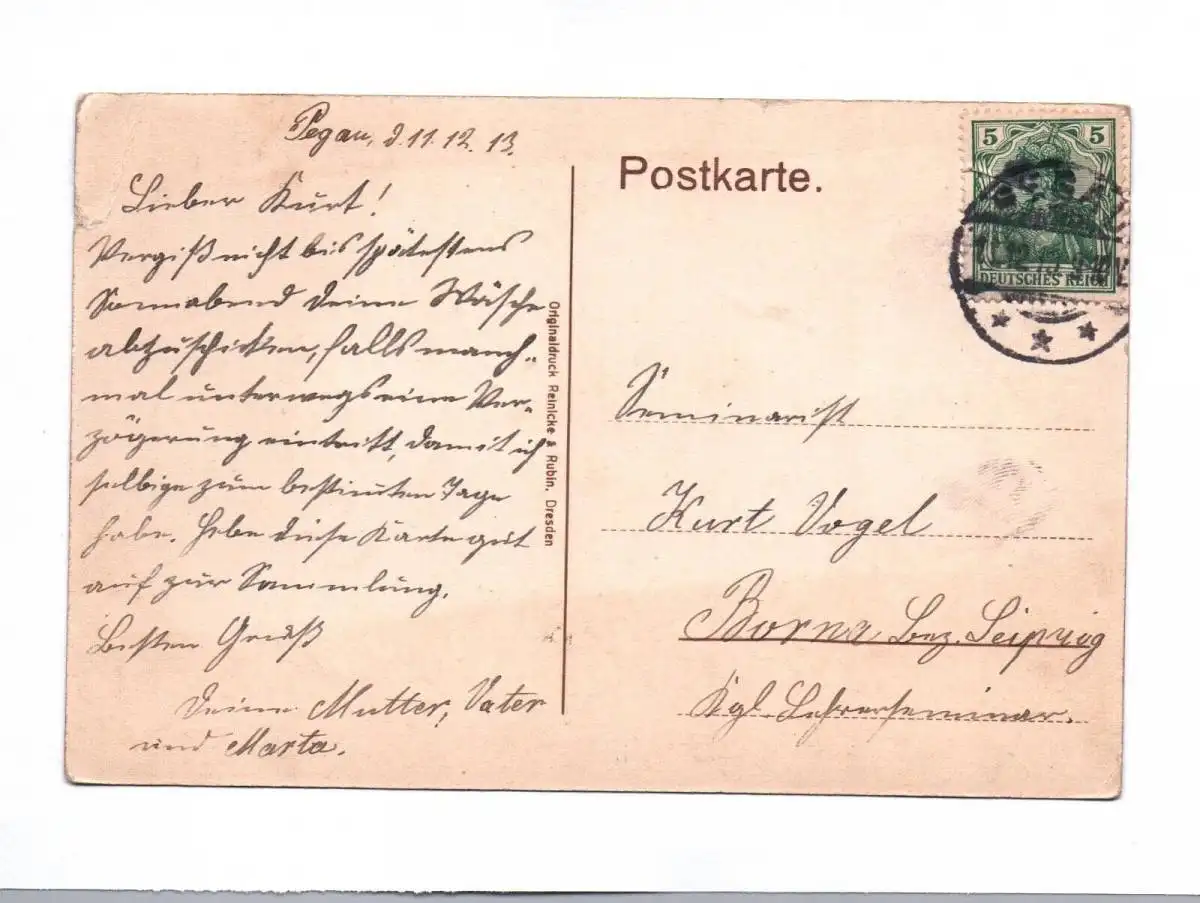 Pegau, d. 11. 12. 13.
Lieber Kurt!
Vergiß nicht bis spätestens
Sonnabend Deine Wäsche
abzuschicken, falls manch-
mal unterwegs eine Ver-
zögerung eintritt, damit ich
selbige zum bestimten Tage
habe. Hebe diese Karte gut
auf zur Sammlung.
Besten Gruß
Deine Mutter, Vater
und Marta.
Originaldruck Reinicke & Rubin. Dresden
Postkarte.
5 5
DEUTSCHES REICH
Seminarist
Kurt Vogel
Borna Bez. Leipzig
Kgl. Lehrerseminar.